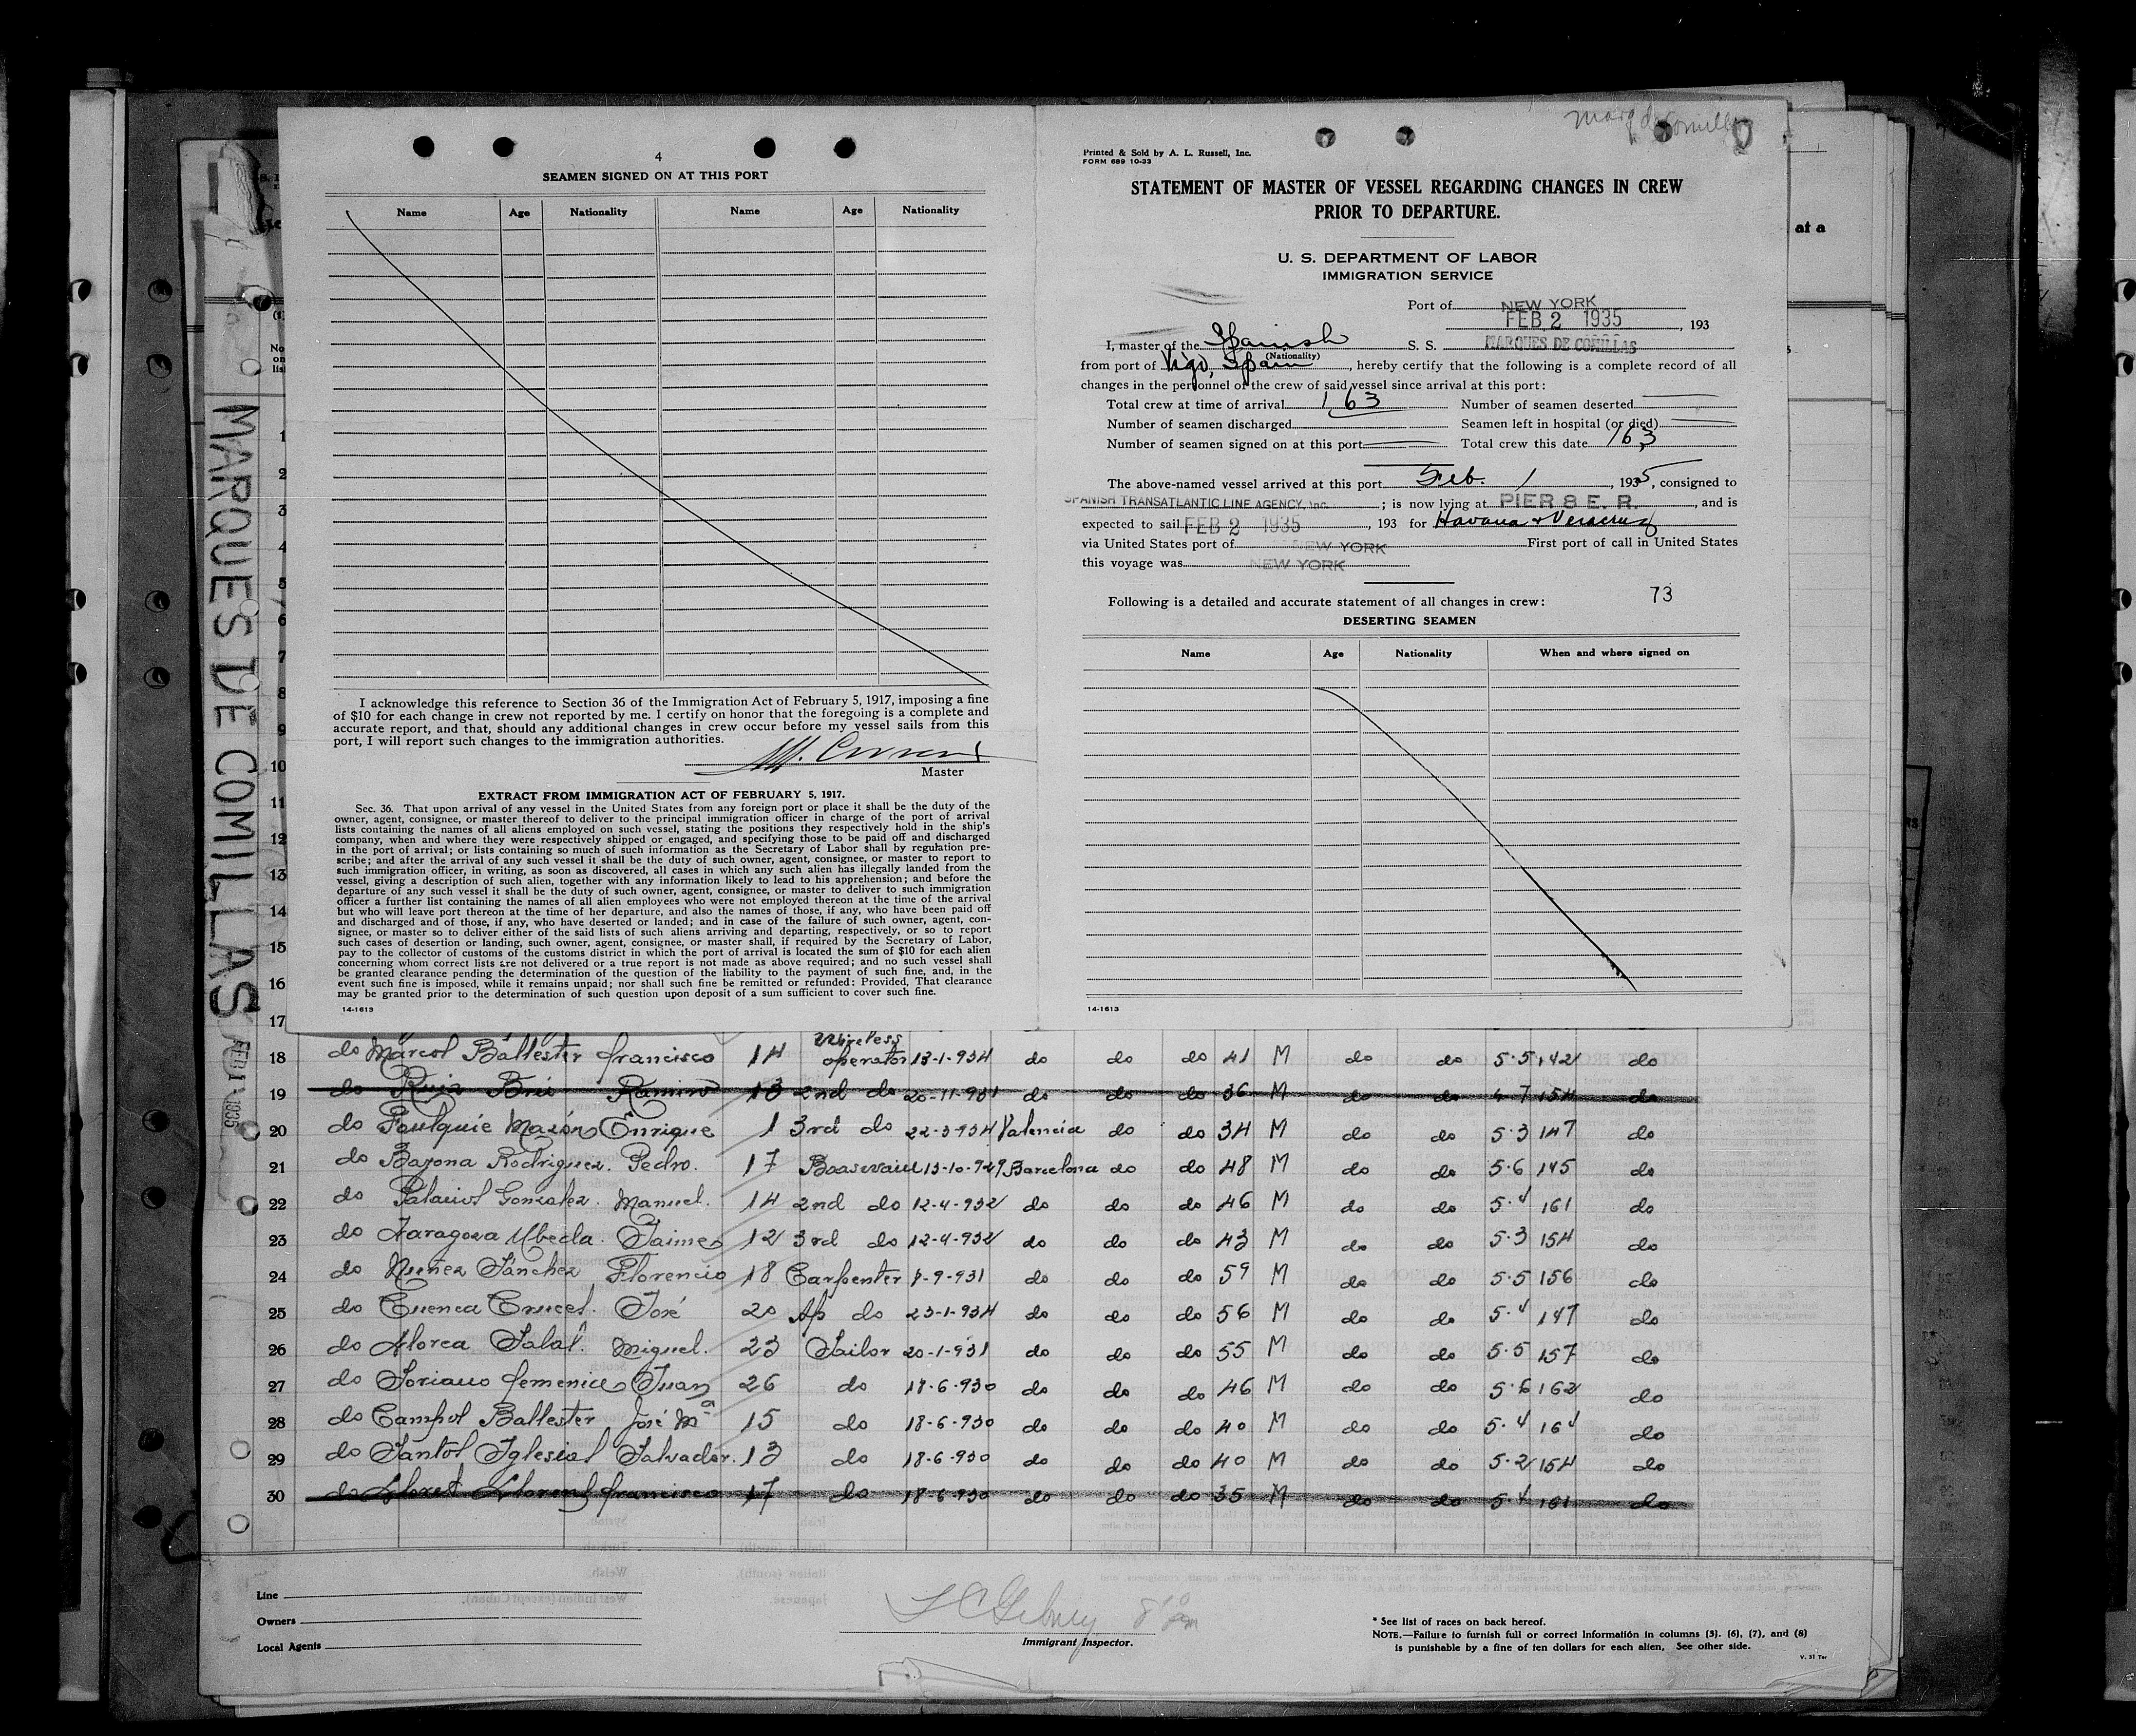 4
SEAMEN SIGNED ON AT THIS PORT
Name Age Nationality Name Age Nationality
I acknowledge this reference to Section 36 of the Immigration Act of February 5, 1917, imposing a fine
of $10 for each change in crew not reported by me. I certify on honor that the foregoing is a complete and
accurate report, and that, should any additional changes in crew occur before my vessel sails from this
port, I will report such changes to the immigration authorities.
Master
EXTRACT FROM IMMIGRATION ACT OF FEBRUARY 5, 1917.
Sec. 36. That upon arrival of any vessel in the United States from any foreign port or place it shall be the duty of the
owner, agent, consignee, or master thereof to deliver to the principal immigration officer in charge of the port of arrival
lists containing the names of all aliens employed on such vessel, stating the positions they respectively hold in the ship's
company, when and where they were respectively shipped or engaged, and specifying those to be paid off and discharged
in the port of arrival; or lists containing so much of such information as the Secretary of Labor shall by regulation pre-
scribe; and after the arrival of any such vessel it shall be the duty of such owner, agent, consignee, or master to report to
such immigration officer, in writing, as soon as discovered, all cases in which any such alien has illegally landed from the
vessel, giving a description of such alien, together with any information likely to lead to his apprehension; and before the
departure of any such vessel it shall be the duty of such owner, agent, consignee, or master to deliver to such immigration
officer a further list containing the names of all alien employees who were not employed thereon at the time of the arrival
but who will leave port thereon at the time of her departure, and also the names of those, if any, who have been paid off
and discharged and of those, if any, who have deserted or landed; and in case of the failure of such owner, agent, con-
signee, or master so to deliver either of the said lists of such aliens arriving and departing, respectively, or so to report
such cases of desertion or landing, such owner, agent, consignee, or master shall, if required by the Secretary of Labor,
pay to the collector of customs of the customs district in which the port of arrival is located the sum of $10 for each alien
concerning whom correct lists are not delivered or a true report is not made as above required; and no such vessel shall
be granted clearance pending the determination of the question of the liability to the payment of such fine, and, in the
event such fine is imposed, while it remains unpaid; nor shall such fine be remitted or refunded: Provided, That clearance
may be granted prior to the determination of such question upon deposit of a sum sufficient to cover such fine.
14-1613
Printed & Sold by A. L. Russell, Inc.
FORM 689 10-33
STATEMENT OF MASTER OF VESSEL REGARDING CHANGES IN CREW
PRIOR TO DEPARTURE.
U. S. DEPARTMENT OF LABOR
IMMIGRATION SERVICE
Port of NEW YORK
FEB 2 1935, 193
I, master of the Spanish S. S. MARQUES DE COMILLAS
(Nationality)
from port of Vigo, Spain, hereby certify that the following is a complete record of all
changes in the personnel of the crew of said vessel since arrival at this port:
Total crew at time of arrival 163 Number of seamen deserted
Number of seamen discharged Seamen left in hospital (or died)
Number of seamen signed on at this port Total crew this date 163
The above-named vessel arrived at this port Feb. 1, 1935, consigned to
SPANISH TRANSATLANTIC LINE AGENCY, Inc.; is now lying at PIER 8 E. R., and is
expected to sail FEB 2 1935, 193 for Havana & Veracruz
via United States port of NEW YORK First port of call in United States
this voyage was NEW YORK
73
Following is a detailed and accurate statement of all changes in crew:
DESERTING SEAMEN
Name Age Nationality When and where signed on
14-1613
at a
MARQUES DE COMILLAS
FEB 1 1935
1
2
3
4
5
6
7
8
9
10
11
12
13
14
15
16
17
18 do Marcol Ballester francisco 14 Wireless operator 13-1-934 do do do 41 M do do 5.5 142 do
19 do Ruiz Brié Ramiro 13 2nd do 20-11-931 do do do 36 M do do 154 do
20 do Foulquié Mazón Enrique 1 3rd do 22-3-934 Valencia do do 34 M do do 5.3 147 do
21 do Bazona Rodriguez. Pedro. 17 13-10-929 Barcelona do do 48 M do do 5.6 145 do
22 do Palaciol Gonzalez. Manuel. 14 2nd do 12-4-932 do do do 46 M do do 5.4 161 do
23 do Zaragoza Ubeda. Jaime 12 3rd do 12-4-932 do do do 43 M do do 5.3 154 do
24 do Nuñez Sánchez Florencio 18 Carpenter 8-9-931 do do do 59 M do do 5.5 156 do
25 do Cuenca José 20 Ap do 23-1-934 do do do 56 M do do 5.4 147 do
26 do Llorca Miguel. 23 Sailor 20-1-931 do do do 55 M do do 5.5 157 do
27 do Soriano Juan 26 do 18-6-930 do do do 46 M do do 5.6 162 do
28 do Ballester José Mª 15 do 18-6-930 do do do 40 M do do 5.4 164 do
29 do Santol Iglesial Salvador. 13 do 18-6-930 do do do 40 M do do 5.2 154 do
30 do Lloret francisco 17 do 18-6-930 do do do 35 M do do 5.4 161 do
Line
Owners
Local Agents
Immigrant Inspector.
* See list of races on back hereof.
NOTE.—Failure to furnish full or correct information in columns (3), (6), (7), and (8)
is punishable by a fine of ten dollars for each alien. See other side.